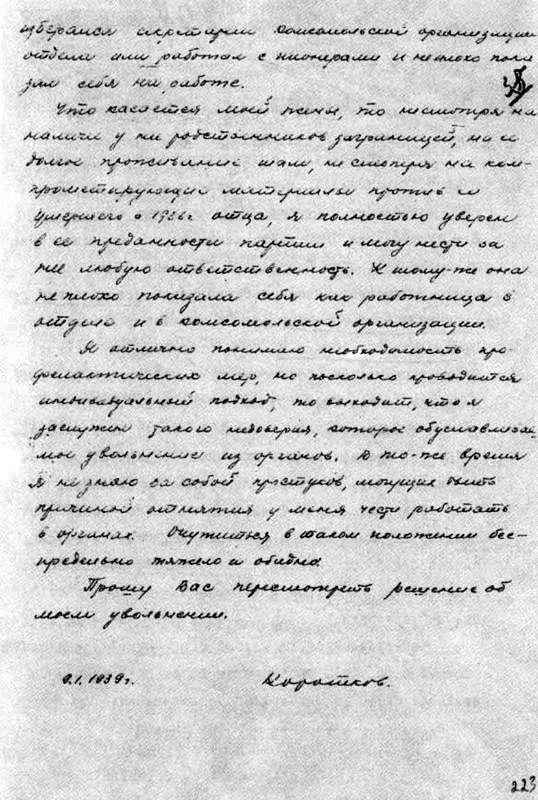 избирался секретарем комсомольской организации
отдела или работал с пионерами и неплохо пока
зал себя на работе.
Что касается моей жены, то несмотря на
наличие у ней родственников заграницей, на ее
долгое проживание там, несмотря на ком-
прометирующие материалы против ее
умершего в 1936 г отца, я полностью уверен
в ее преданности партии и могу нести за
нее любую ответственность. К тому-же она
неплохо показала себя как работница в
отделе и в комсомольской организации.
Я отлично понимаю необходимость про-
филактических мер, но поскольку проводится
индивидуальный подход, то выходит, что я
заслужил такого недоверия, которое обуславливает
мое увольнение из органов. В то-же время
я не знаю за собой проступков, могущих быть
причиной отнятия у меня чести работать
в органах. Очутиться в таком положении бес-
предельно тяжело и обидно.
Прошу Вас пересмотреть решение об
моем увольнении.
9.1.1939 г. Коротков.
223